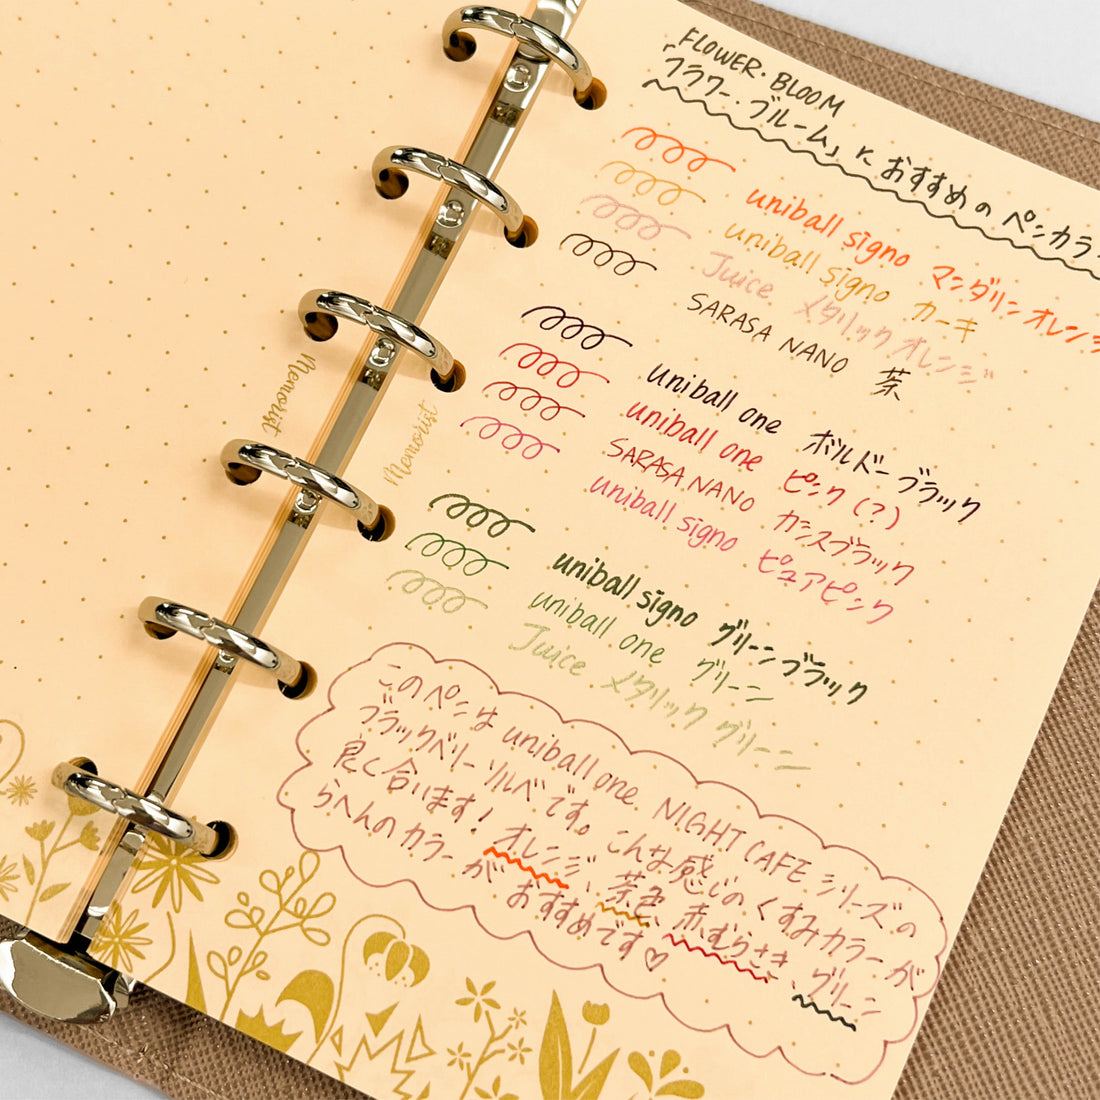 Memorist
Memorist
FLOWER・BLOOM
「フラワー・ブルーム」におすすめのペンカラー
uniball signo マンダリンオレンジ
uniball signo カーキ
Juice メタリックオレンジ
SARASA NANO 茶
uniball one ボルドーブラック
uniball one ピンク(?)
SARASA NANO カシスブラック
uniball signo ピュアピンク
uniball signo グリーンブラック
uniball one グリーン
Juice メタリックグリーン
このペンは uniball one NIGHT CAFE シリーズの
ブラックベリーソルベです。こんな感じのくすみカラーが
良く合います! オレンジ、茶色、赤むらさき、グリーン
らへんのカラーがおすすめです♡